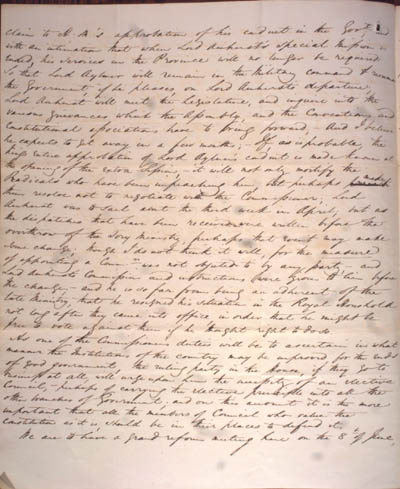 claim to H M's approbation of his conduct in the Govt and
with an intimation that when Lord Amherst's special mission is
ended, his services in the Province will no longer be required
so that Lord Aylmer will remain in the Military command & resume
the Government, if he pleases, on Lord Amherst's departure.
Lord Amherst will meet the Legislature, and inquire into the
various grievances which the Assembly, and the Convocations, and
Constitutional Associations have to bring forward, - And I believe
he expects to get away in a few months; - If, as is probable, the
King's entire approbation of Lord Aylmer's conduct is made known at
the opening of the extra Session, - it will not only mortify the
Radicals who have been impeaching him, but perhaps make
them resolve not to negotiate with the Commissioner. Lord
Amherst was to sail about the third week in April, but as
the dispatches that have been received were written before the
overthrow of the Tory Ministry, perhaps that event may make
some change, though I do not think it will, for the measure
of appointing a Commr was not objected to by any party, and
Lord Amherst's Commission and instructions were given to him before
the change, - and he is so far from being an adherent of the
late Ministry, that he resigned his situation in the Royal Household
not long after they came into office in order that he might be
free to vote against them if he thought right to do so.
As one of the Commissioners duties will be to ascertain in what
manner the Institutions of the country may be improved for the ends
of good government the ruling party in the House, if they go to
him at all, will urge upon him the necessity of an elective
Council, - perhaps of carrying the elective principle into all the
other branches of Government, and on this account it is the more
important that all the members of Council who value the
Constitution as it is, should be in their places to defend it.
We are to have a grand reform meeting here on the 8th of June,